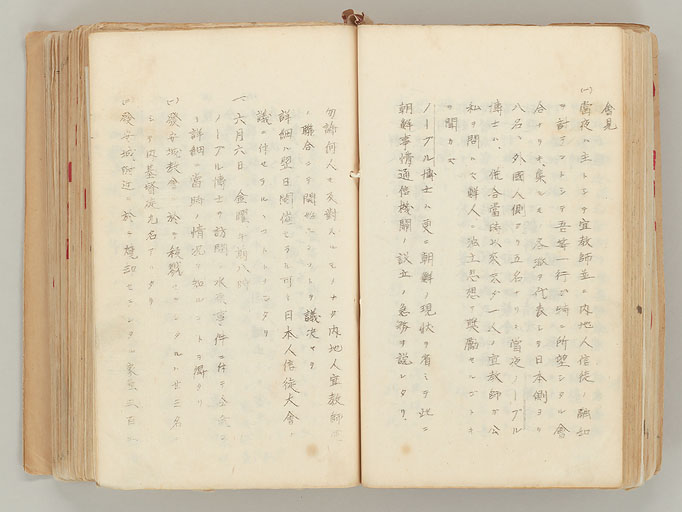 會見
(一)當夜ハ主トシテ宣教師並ニ内地人信徒ノ融和
ヲ計ランコトシテ吾等一行ガ特ニ所望シタル會
合ナリキ、集ルモノ各派ヲ代表シテ日本側ヨリ
八名、外國人側ヨリ五名ナリシ當夜ノーブル
博士ハ、併合當時以來未ダ一人ノ宣教師ガ公
私ヲ問ハズ鮮人ニ獨立思想ヲ鼓勵セルコトキ
ヲ聞カズ
ノーブル博士ハ更ニ朝鮮ノ現状ヲ省ミテ此ニ
朝鮮事情通信機關ノ設立ノ急務ヲ説レタリ
勿論何人モ反對スルモノナク内地人宣教師
聯合シテ開始センコトヲ議決セリ
詳細ハ翌日開催セラル可キ日本人信徒大會ノ
議ニ付セラルヽコトトナレリ
一、六月六日 金曜 午前八時
ノーブル博士ヲ訪問シ水原事件ニ付キ
詳細ニ當時ノ情況ヲ知ルコトヲ得タリ
(一)發安城教會ニ於テ殺戮セラレタルハ廿三名
シテ内基督徒九名アリタリ
(二)發安城附近ニ於テ燒却セラレタル家屋